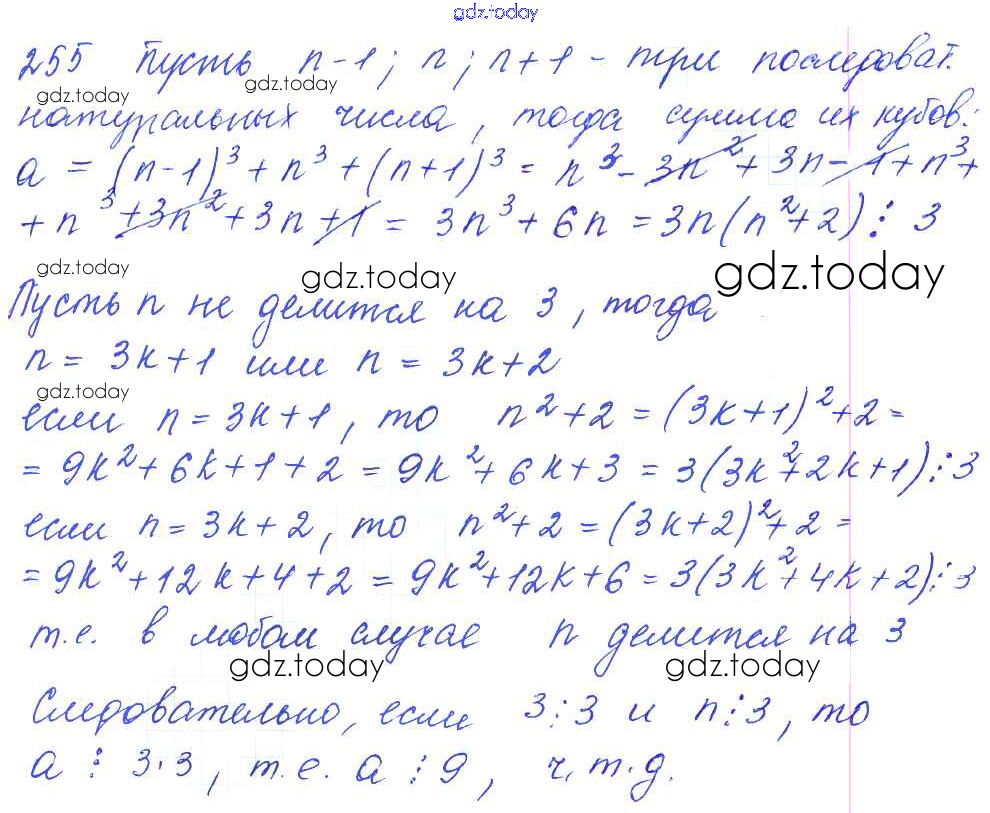 gdz.today
255 Пусть n-1; n; n+1 - три последоват.
gdz.today gdz.today
натуральных числа, тогда сумма их кубов:
a = (n-1)³ + n³ + (n+1)³ = n³ - 3n² + 3n - 1 + n³ +
+ n³ + 3n² + 3n + 1 = 3n³ + 6n = 3n(n²+2) ⋮ 3
gdz.today gdz.today gdz.today
Пусть n не делится на 3, тогда
n = 3k+1 или n = 3k+2
gdz.today
если n = 3k+1, то n²+2 = (3k+1)²+2 =
= 9k²+6k+1+2 = 9k²+6k+3 = 3(3k²+2k+1) ⋮ 3
если n = 3k+2, то n²+2 = (3k+2)²+2 =
= 9k²+12k+4+2 = 9k²+12k+6 = 3(3k²+4k+2) ⋮ 3
т.е. в любом случае n делится на 3
gdz.today gdz.today
Следовательно, если 3 ⋮ 3 и n ⋮ 3, то
a ⋮ 3·3, т.е. a ⋮ 9, ч.т.д.
gdz.today gdz.today gdz.today